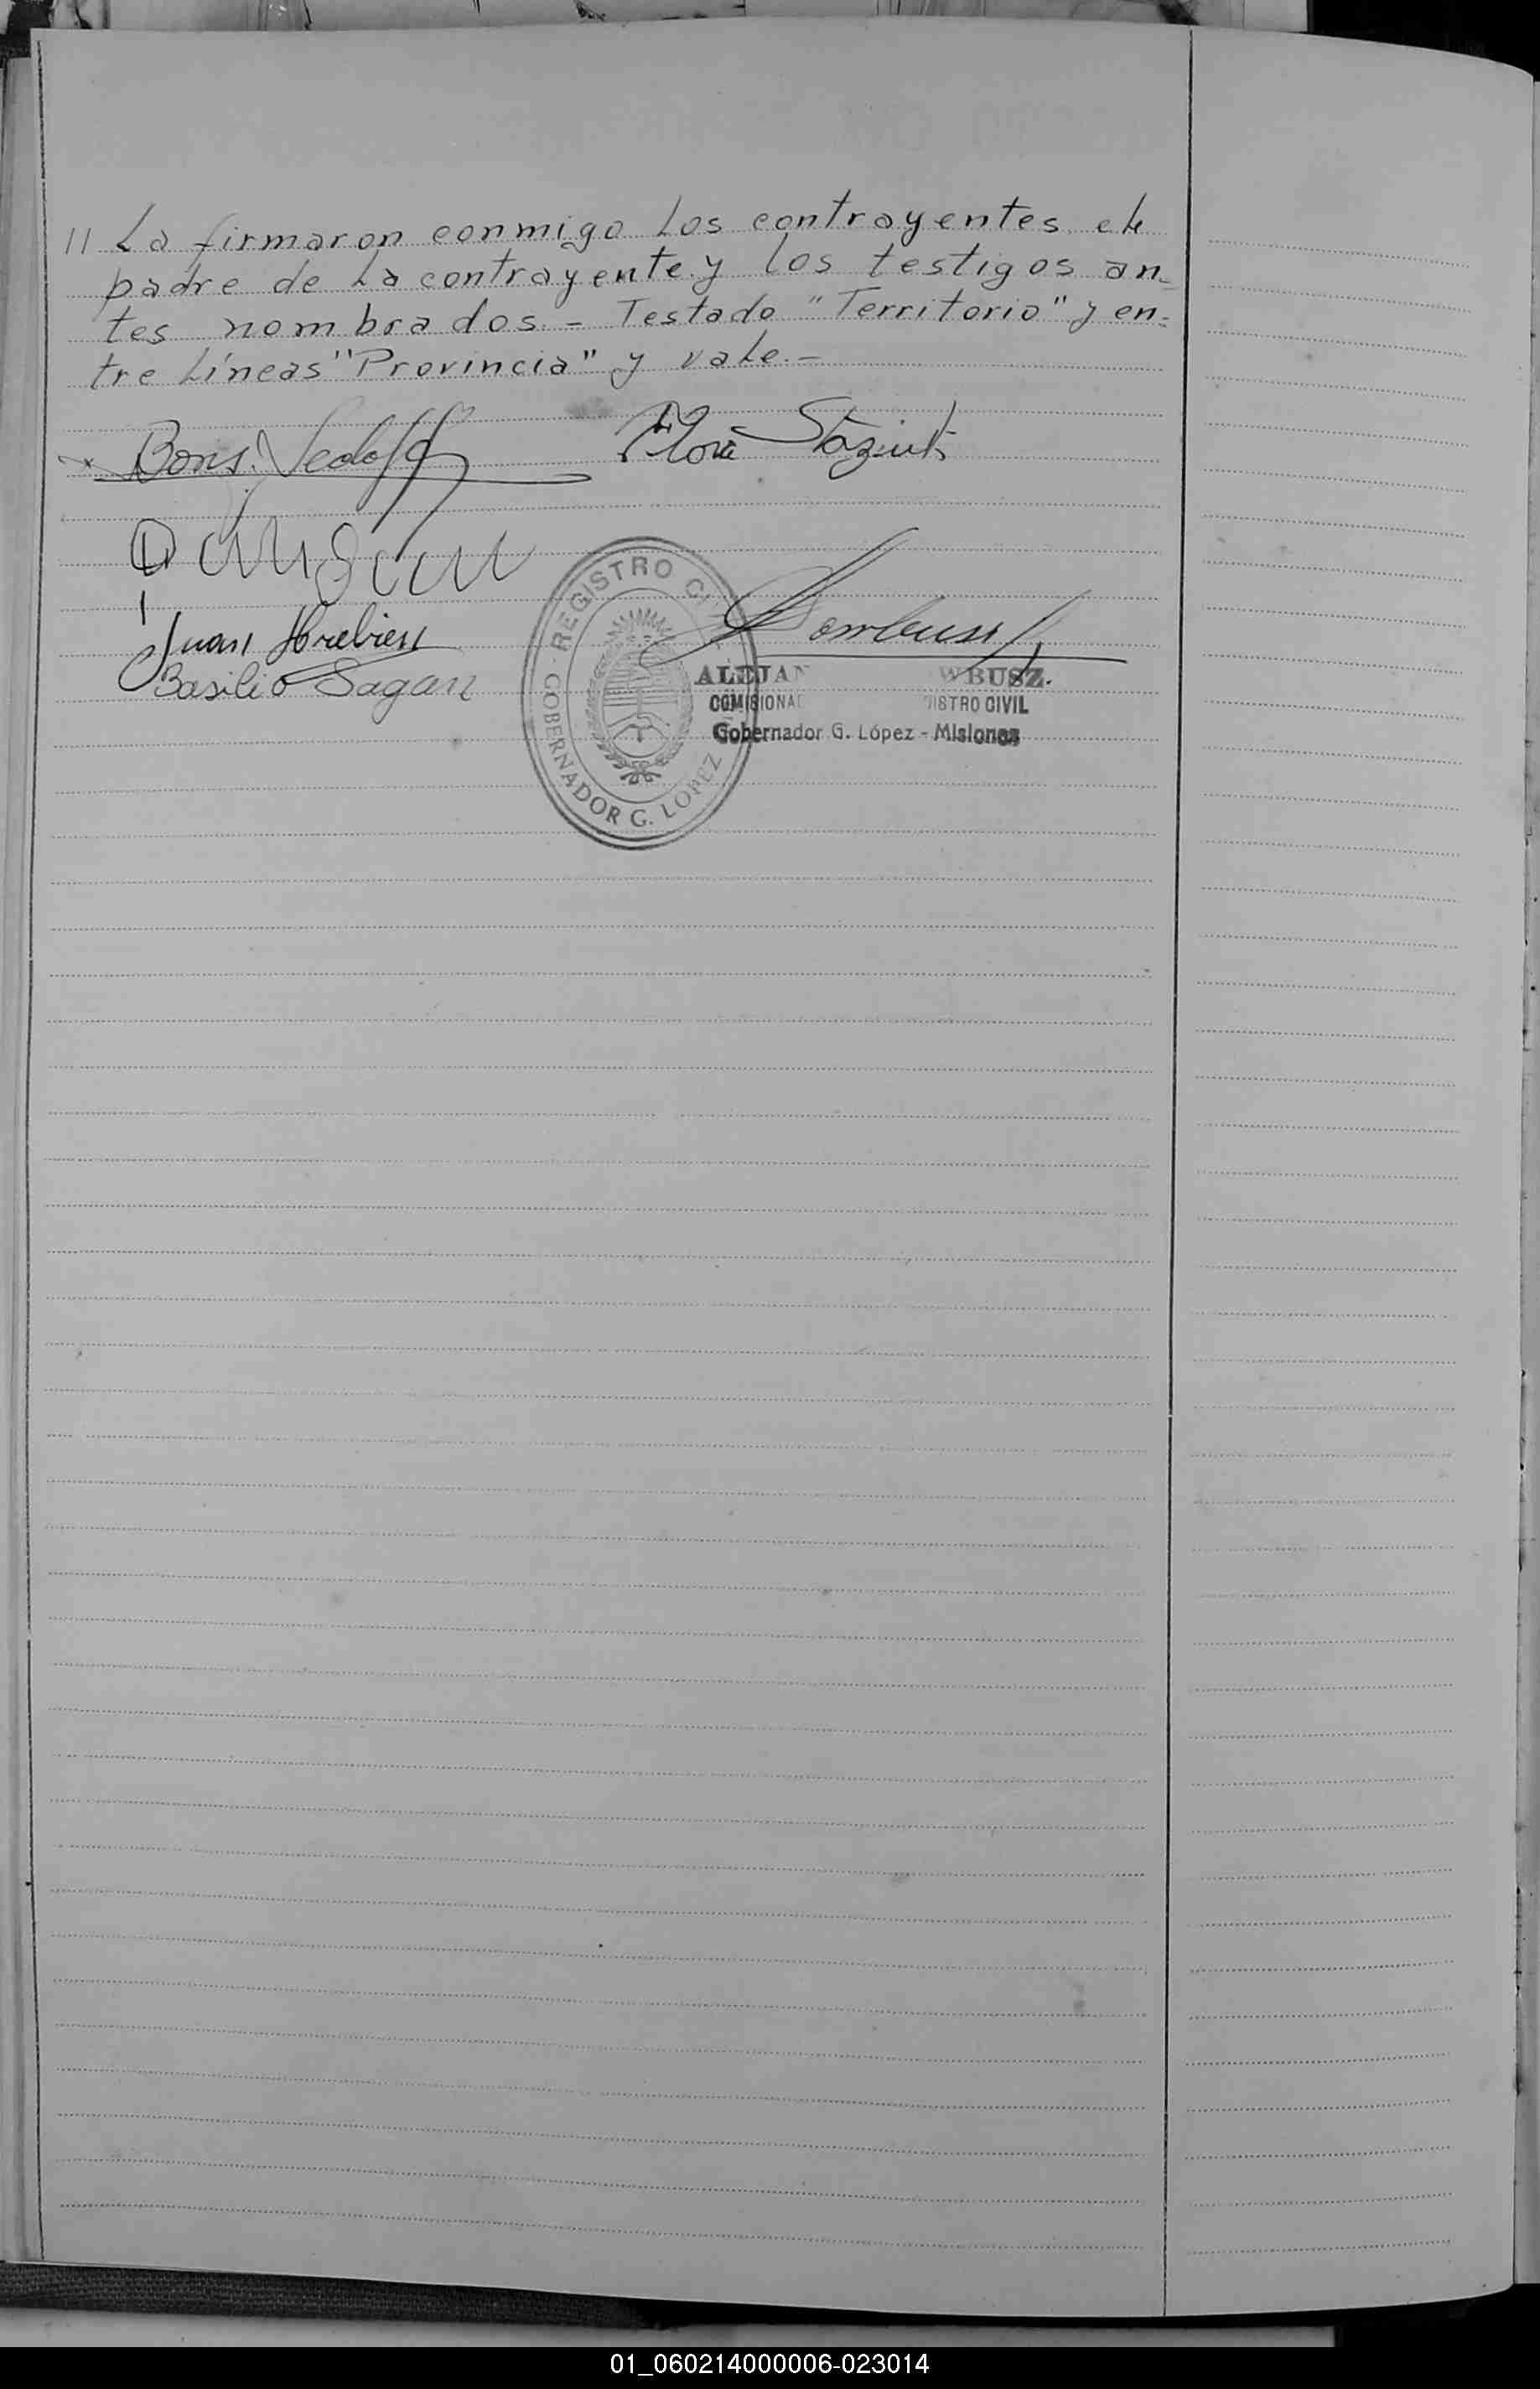 // La firmaron conmigo los contrayentes, el
padre de la contrayente y los testigos an-
tes nombrados.- Testado "Territorio" y en-
tre líneas "Provincia" y vale.-
Boris Flora
Juan Hrebien
Basilio Sagan
REGISTRO CI
GOBERNADOR G. LOPEZ
ALEJAN WBUSZ.
COMISIONAD ISTRO CIVIL
Gobernador G. López - Misiones
01_060214000006-023014